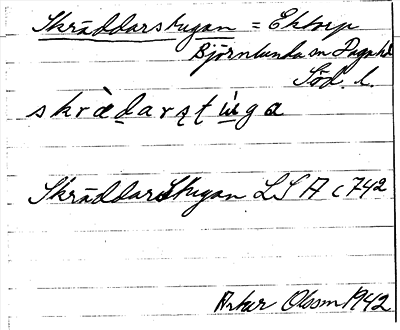 Skräddarstugan = Ektorp
Björnlunda sn Daga hd
Söd. l.
skràdarstùga
Skräddarstugan LSA c742
Artur Olsson 1942